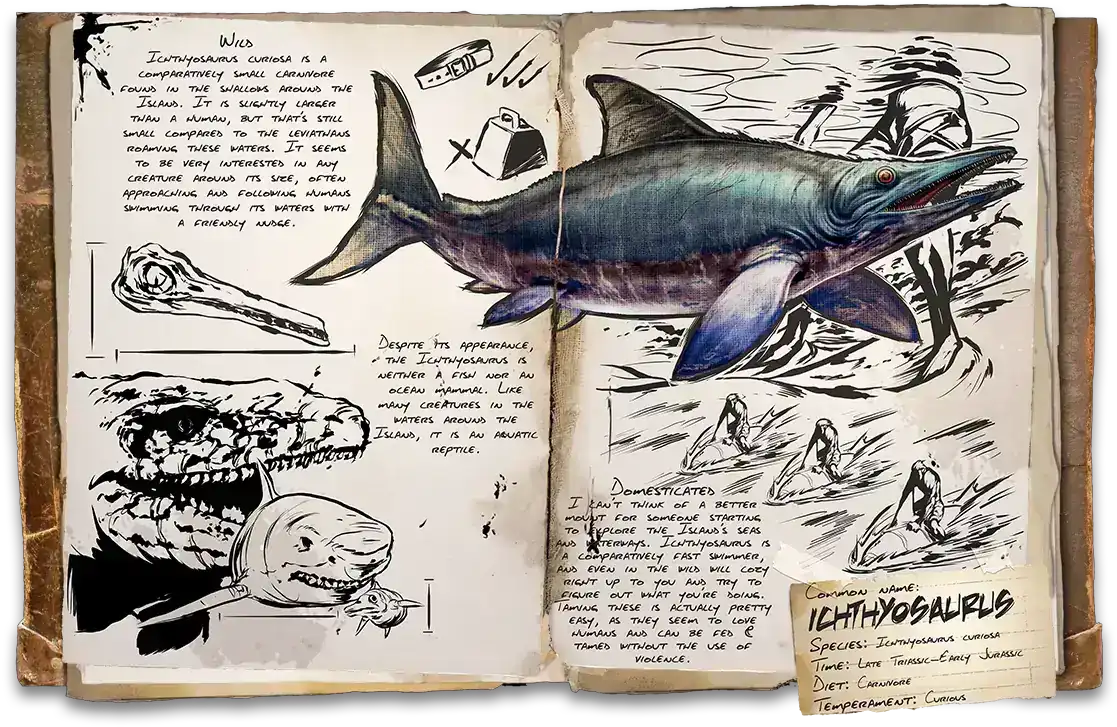 Wild
Ichthyosaurus curiosa is a
comparatively small carnivore
found in the shallows around the
Island. It is slightly larger
than a human, but that's still
small compared to the leviathans
roaming these waters. It seems
to be very interested in any
creature around its size, often
approaching and following humans
swimming through its waters with
a friendly nudge.
Despite its appearance,
the Ichthyosaurus is
neither a fish nor an
ocean mammal. Like
many creatures in the
waters around the
Island, it is an aquatic
reptile.
Domesticated
I can't think of a better
mount for someone starting
to explore the Island's seas
and waterways. Ichthyosaurus is
a comparatively fast swimmer,
and even in the wild will cozy
right up to you and try to
figure out what you're doing.
Taming these is actually pretty
easy, as they seem to love
humans and can be fed &
tamed without the use of
violence.
Common name:
Ichthyosaurus
Species: Ichthyosaurus curiosa
Time: Late Triassic-Early Jurassic
Diet: Carnivore
Temperament: Curious